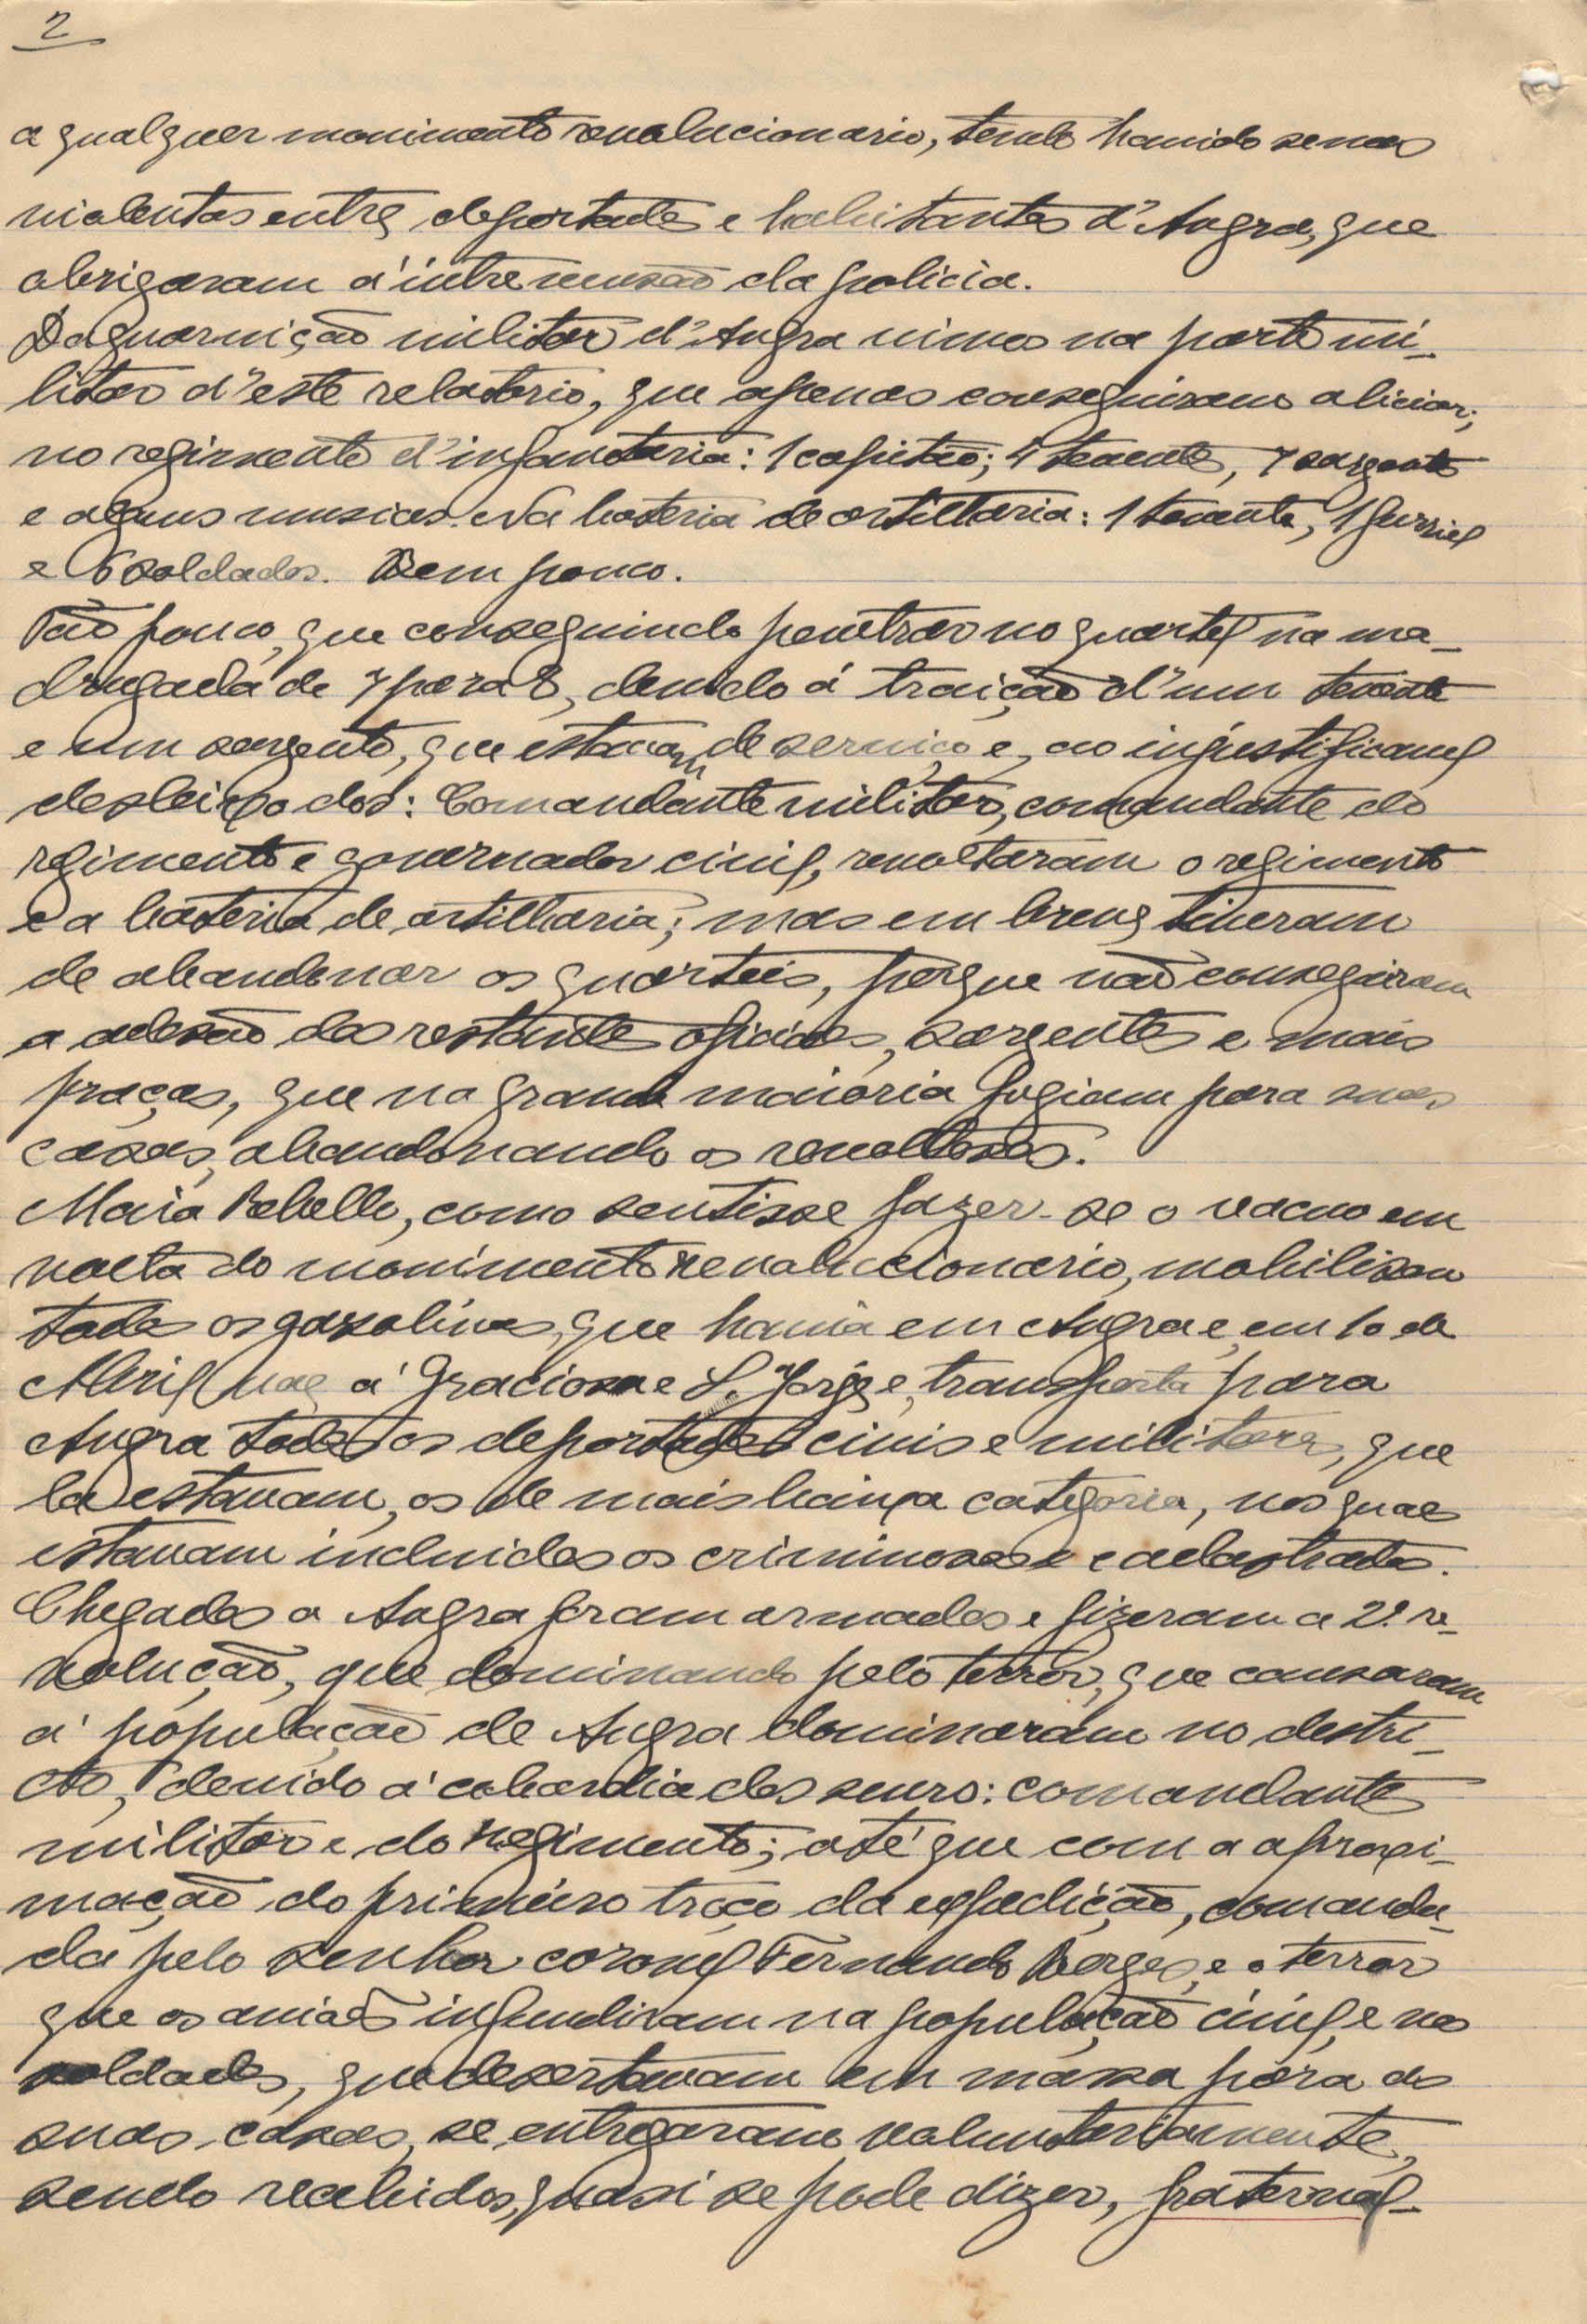 2
a qualquer movimento revolucionario, tendo havido scenas
violentas entre deportados e habitantes d'Angra, que
obrigaram á intrevenção da policia.
Da guarnição militar d'Angra vimos na parte mi-
litar d'este relatorio, que apenas conseguiram aliciar;
no regimento d'infantaria: 1 capitão; 4 tenentes, 7 sargentos
e alguns musicos. Na bateria de artilharia: 1 tenente, 1 furriel
e 6 soldados. Bem pouco.
Tão pouco, que conseguindo penetrar no quartel na ma-
drugada de 7 para 8, devido á traição d'um tenente
e um sargento, que estavam de serviço e, ao injustificavel
desleixo dos: Comandante militar, comandante do
regimento e governador civil, revoltaram o regimento
e a bateria de artilharia; mas em breve tiveram
de abandonar os quarteis, porque não conseguiram
a adesão dos restantes oficiaes, sargentos e mais
praças, que na grande maioria fugiam para suas
casas, abandonando os revoltosos.
Maia Rebello, como sentisse fazer-se o vacuo em
volta do movimento revolucionario, mobilisou
todos os gasolinas, que havia em Angra e, em 10 de
Abril vae á Graciosa e S. Jorge e, transporta para
Angra todos os deportados civis e militares, que
la estavam, os de mais baixa categoria, nos quaes
estavam incluidos os criminosos e cadastrados.
Chegados a Angra foram armados e fizeram a 2ª re-
volução, que dominando pelo terror, que causaram
á população de Angra dominaram no destri-
cto, devido á cobardia dos snurs: comandante
militar e do regimento; até que com a aproxi-
mação do primeiro troço da expedição, comanda-
da pelo senhor coronel Fernando Borges, e o terror
que os aviões infundiram na população civil, e nos
soldados, que desertavam em massa para as
suas casas, se entregaram voluntariamente,
sendo recebidos, quasi se pode dizer, fraternal-